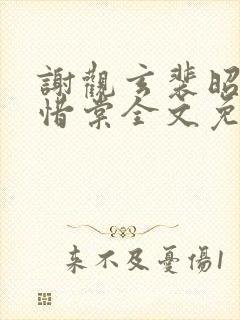 謝觀玄裴昭
惜棠全文免
来不及憂傷1